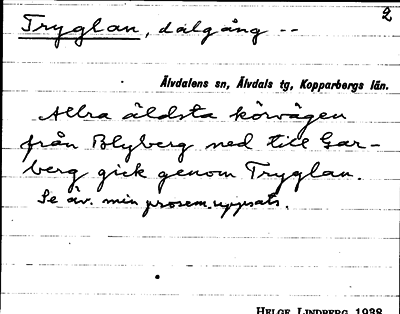 2
Tryglan, dalgång --
Älvdalens sn, Älvdals tg, Kopparbergs län.
Allra äldsta körvägen
från Blyberg ned till Gar-
berg gick genom Tryglan.
Se äv. min prosem.uppsats.
HELGE LINDBERG 1938